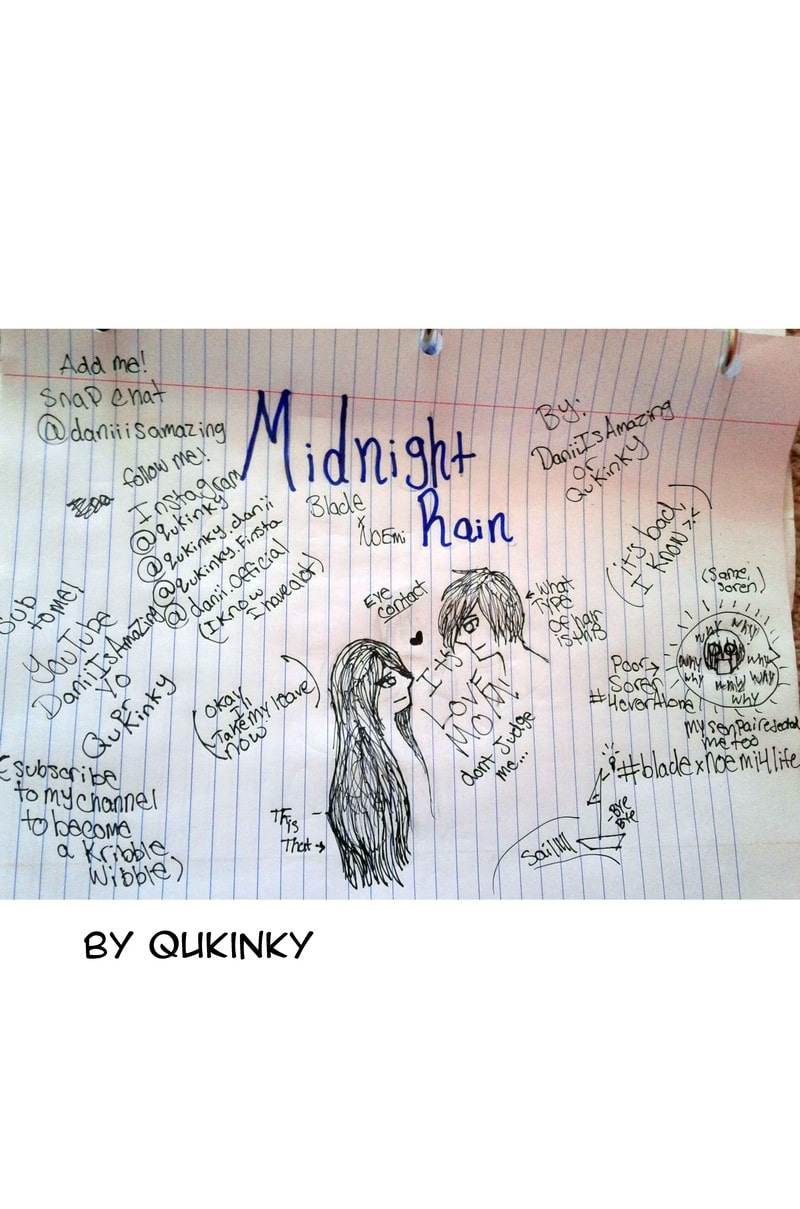 Add me!
Snap Chat
@daniiisamazing
follow me!
Instagram
@qukinky
@qukinky_danii
@qukinky.Finsta
@danii.official
(I know
I have alot)
Midnight
Rain
Blade
x
NoEmi
By:
DaniiIsAmazing
or
QuKinky
(it's bad,
I know >.<)
Sub
to me!
YouTube
DaniiIsAmazing
Yo
or
QuKinky
(Subscribe
to my channel
to become
a Kribble
Wibble)
(okay
I'll
Take my leave
now)
Eye
contact
It's
LOVE
MOM!
dont Judge
me...
What
Type
of hair
is this
This
That
(Same,
Soren,)
WHY WHY
why why
why why why why
why
Poor
Soren
#4everAlone
my senpai rejected
me too
#bladexnoemi4life
-Bye
Bye
Sail!!!!
BY QUKINKY